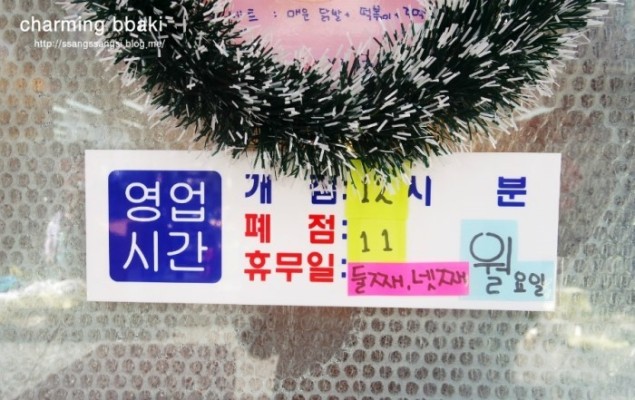 charming bbaki
http://ssangssungyi.blog.me/
세트 : 매운 닭발 + 떡볶이 + 주먹
영업
시간
개 점: 12 시 분
폐 점: 11
휴무일: 둘째, 넷째 월요일